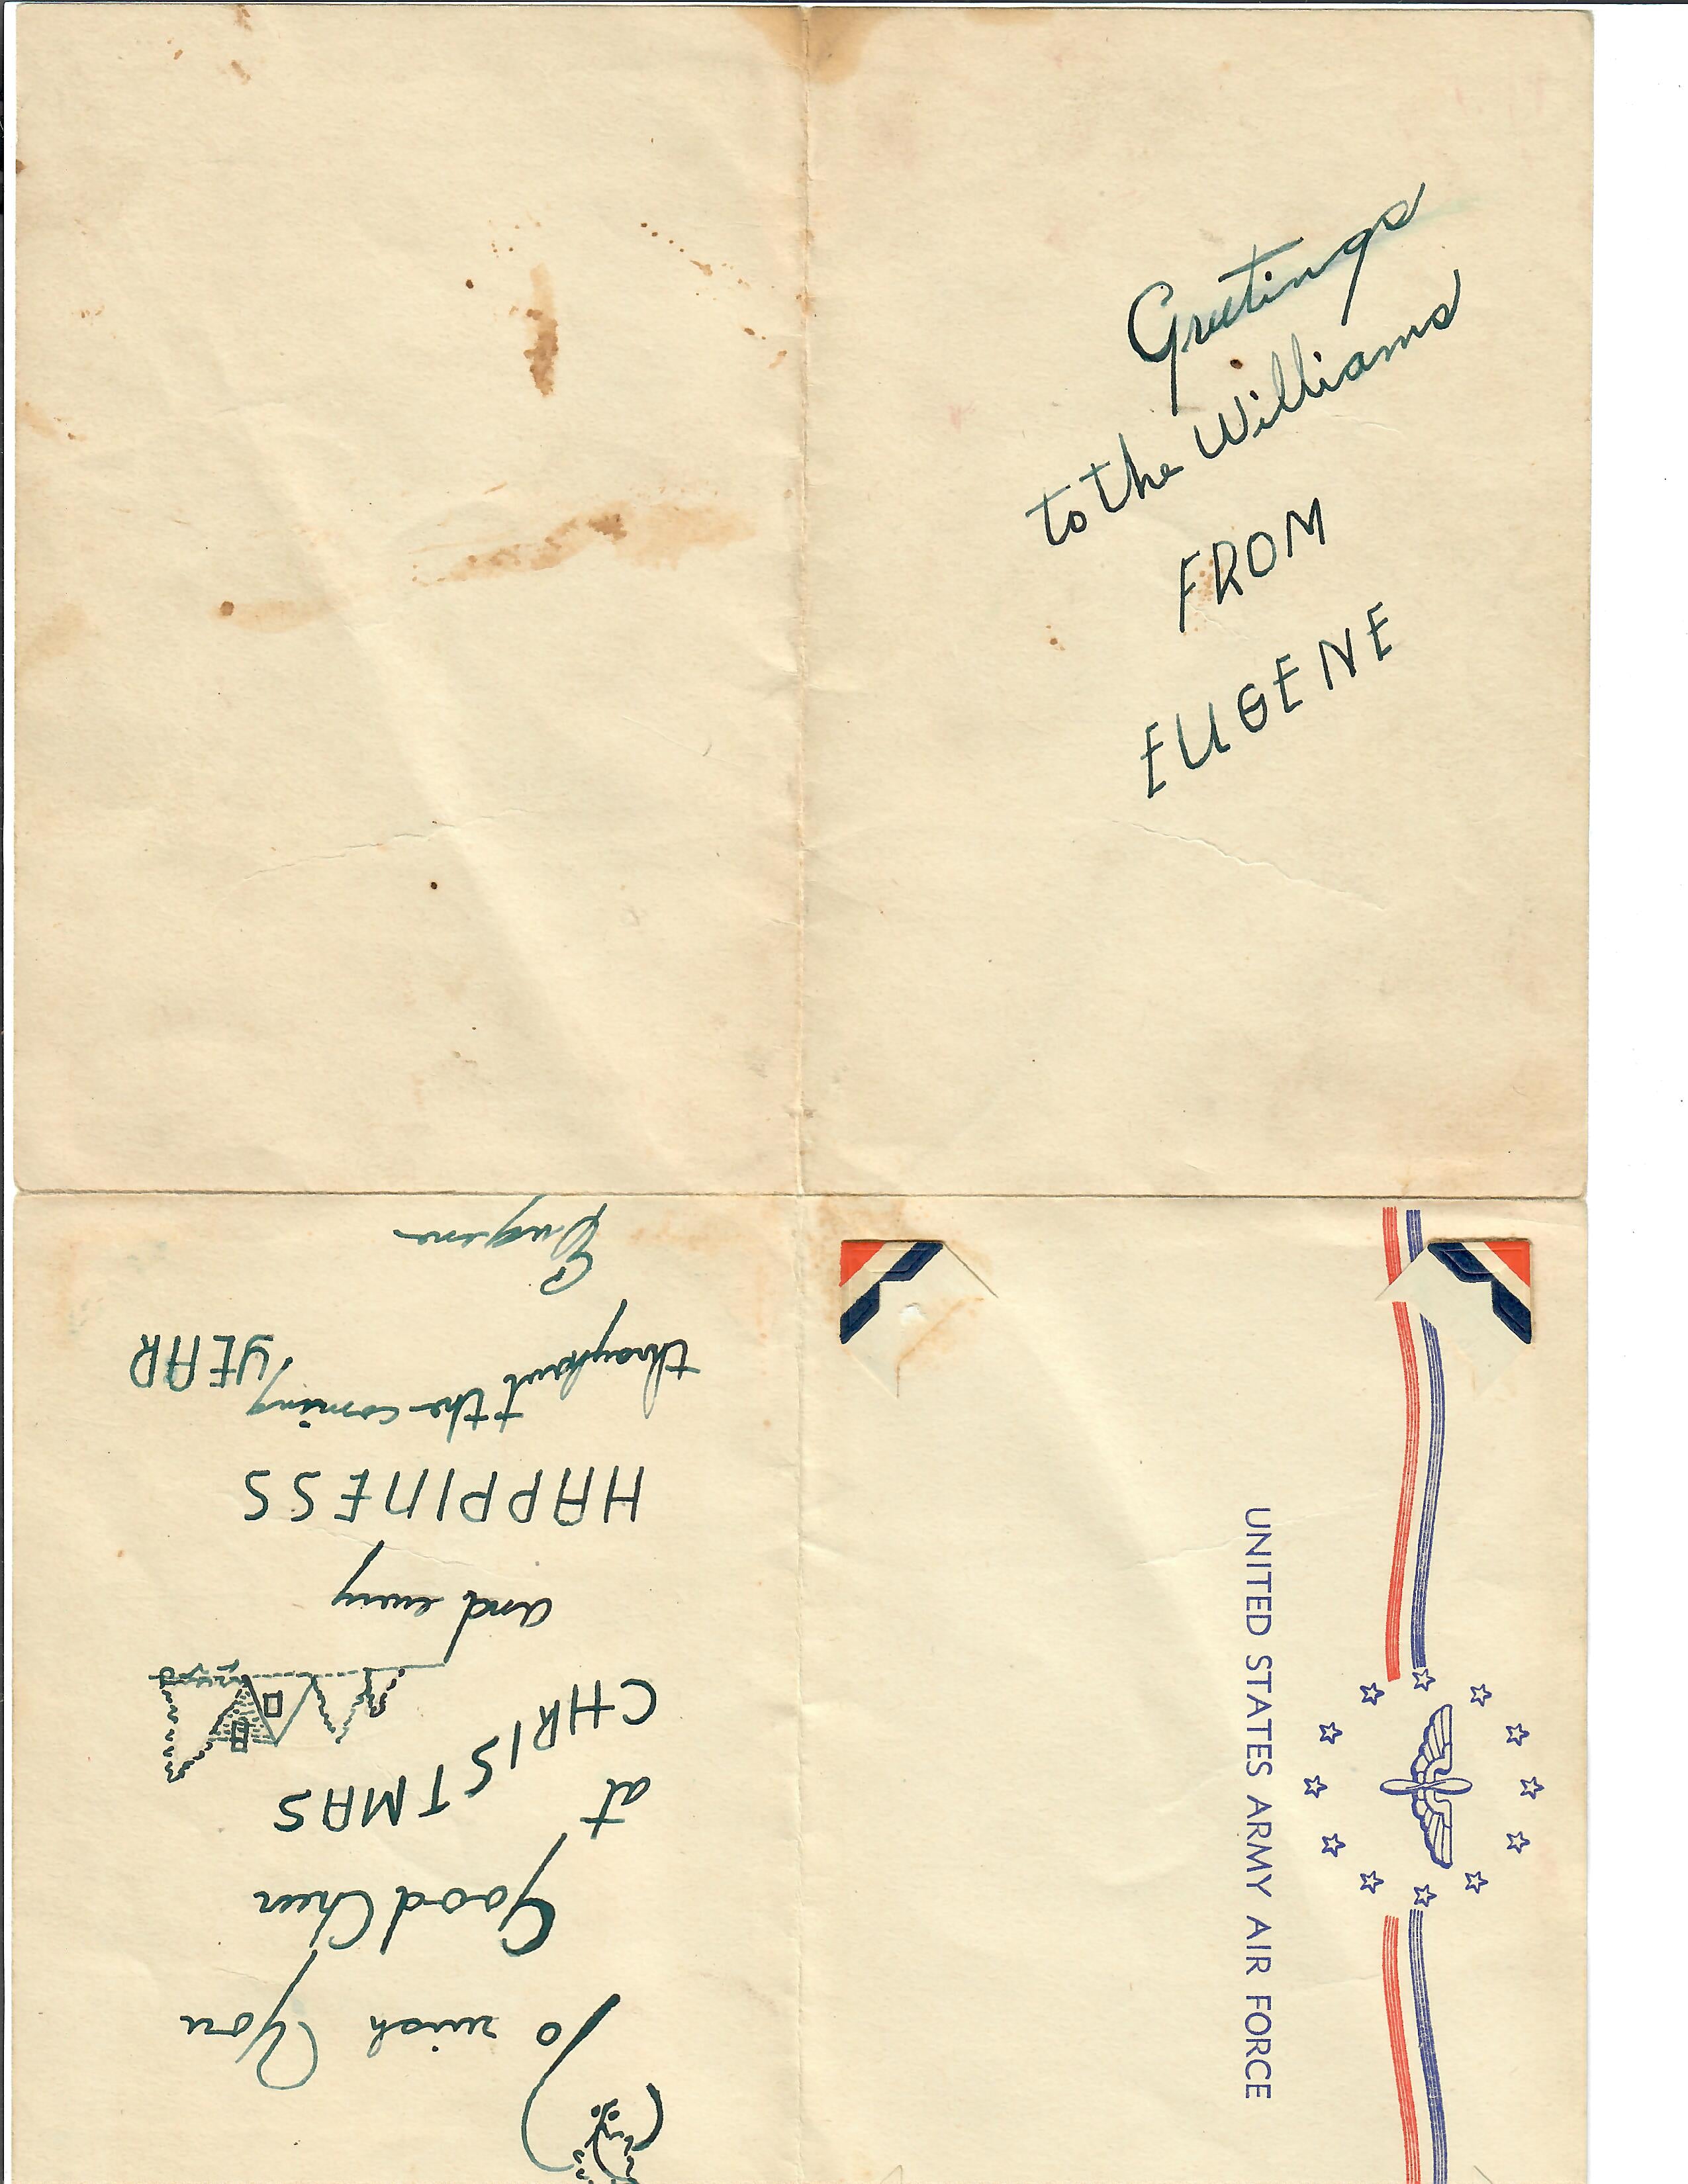 Greetings
to the Williams
FROM
EUGENE
To wish You
Good Cheer
at
CHRISTMAS
and every
HAPPINESS
throughout the coming
YEAR
Eugene
UNITED STATES ARMY AIR FORCE